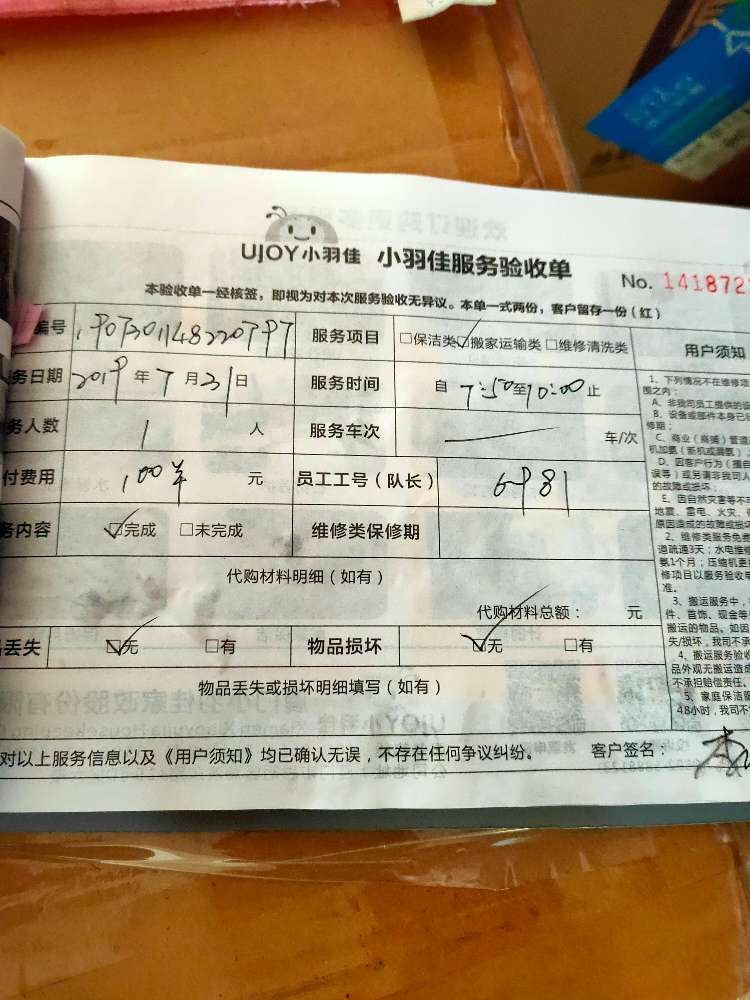 UJOY小羽佳 小羽佳服务验收单
No. 141872
本验收单一经核签，即视为对本次服务验收无异议。本单一式两份，客户留存一份（红）
编号 服务项目 □保洁类☑搬家运输类□维修清洗类 用户须知
务日期 2019年7月31日 服务时间 自7:50至10:00止
务人数 1 人 服务车次 车/次
付费用 元 员工工号（队长） 6981
务内容 ☑完成 □未完成 维修类保修期
代购材料明细（如有）
代购材料总额： 元
品丢失 ☑无 □有 物品损坏 ☑无 □有
物品丢失或损坏明细填写（如有）
对以上服务信息以及《用户须知》均已确认无误，不存在任何争议纠纷。 客户签名：
1、下列情况不在维修范
围之内：
A、非我司员工提供的设
B、设备或部件本身已
修期；
C、商业（商铺）管道
机加氨（新机或漏氨）
D、因客户行为（擅自
误等）或另请非我司人
的故障或损坏；
E、因自然灾害等不
地震、雷电、火灾、
原因造成的故障或损
2、维修类服务免费
道疏通3天；水电维修
氨1个月；压缩机更
修项目以服务验收
准。
3、搬运服务中，
件、首饰、现金等
搬运的物品。如因
失/损坏，我司不承
4、搬运服务验收
品外观无搬运造成
不承担赔偿责任。
5、家庭保洁服
48小时，我司不